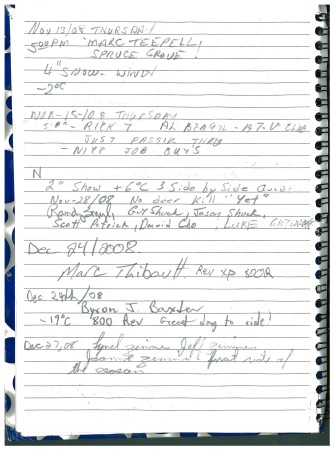 Nov 13/08 THURSDAY
5:00PM MARC TEEPELL
SPRUCE GROVE!
4" SNOW - WINDY
-2°C
NOV-13-08 THURSDAY
RICK T AL
JUST PASSIN THRU
- NICE JOB GUYS
N
2" Snow +6°C 3 Side by Side Quads
Nov-28/08 No deer kill "Yet"
Guy Shuck, Jason Shuck,
Scott Patrick, David Cho, LUKE
Dec 24/2008
Marc Thibault. Rev XP 800R
Dec 24th/08
Byron J. Baxter
-19°C '800 Rev Great day to ride!
Dec 27, 08 Jeff
first ride of
the season